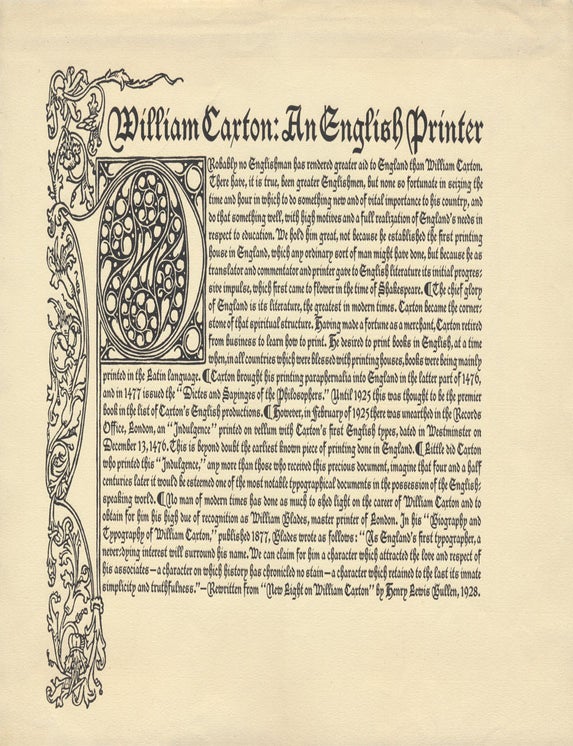 William Caxton: An English Printer
PRobably no Englishman has rendered greater aid to England than William Caxton.
There have, it is true, been greater Englishmen, but none so fortunate in seizing the
time and hour in which to do something new and of vital importance to his country, and
do that something well, with high motives and a full realization of England's needs in
respect to education. We hold him great, not because he established the first printing
house in England, which any ordinary sort of man might have done, but because he as
translator and commentator and printer gave to English literature its initial progres-
sive impulse, which first came to flower in the time of Shakespeare. ¶The chief glory
of England is its literature, the greatest in modern times. Caxton became the corner-
stone of that spiritual structure. Having made a fortune as a merchant, Caxton retired
from business to learn how to print. He desired to print books in English, at a time
when, in all countries which were blessed with printing houses, books were being mainly
printed in the Latin language. ¶Caxton brought his printing paraphernalia into England in the latter part of 1476,
and in 1477 issued the "Dictes and Sayinges of the Philosophers." Until 1925 this was thought to be the premier
book in the list of Caxton's English productions. ¶However, in February of 1925 there was unearthed in the Records
Office, London, an "Indulgence" printed on vellum with Caxton's first English types, dated in Westminster on
December 13, 1476. This is beyond doubt the earliest known piece of printing done in England. ¶Little did Caxton
who printed this "Indulgence," any more than those who received this precious document, imagine that four and a half
centuries later it would be esteemed one of the most notable typographical documents in the possession of the English-
speaking world. ¶No man of modern times has done as much to shed light on the career of William Caxton and to
obtain for him his high due of recognition as William Blades, master printer of London. In his "Biography and
Typography of William Caxton," published 1877, Blades wrote as follows: "As England's first typographer, a
never-dying interest will surround his name. We can claim for him a character which attracted the love and respect of
his associates—a character on which history has chronicled no stain—a character which retained to the last its innate
simplicity and truthfulness."—Rewritten from "New Light on William Caxton" by Henry Lewis Bullen, 1928.